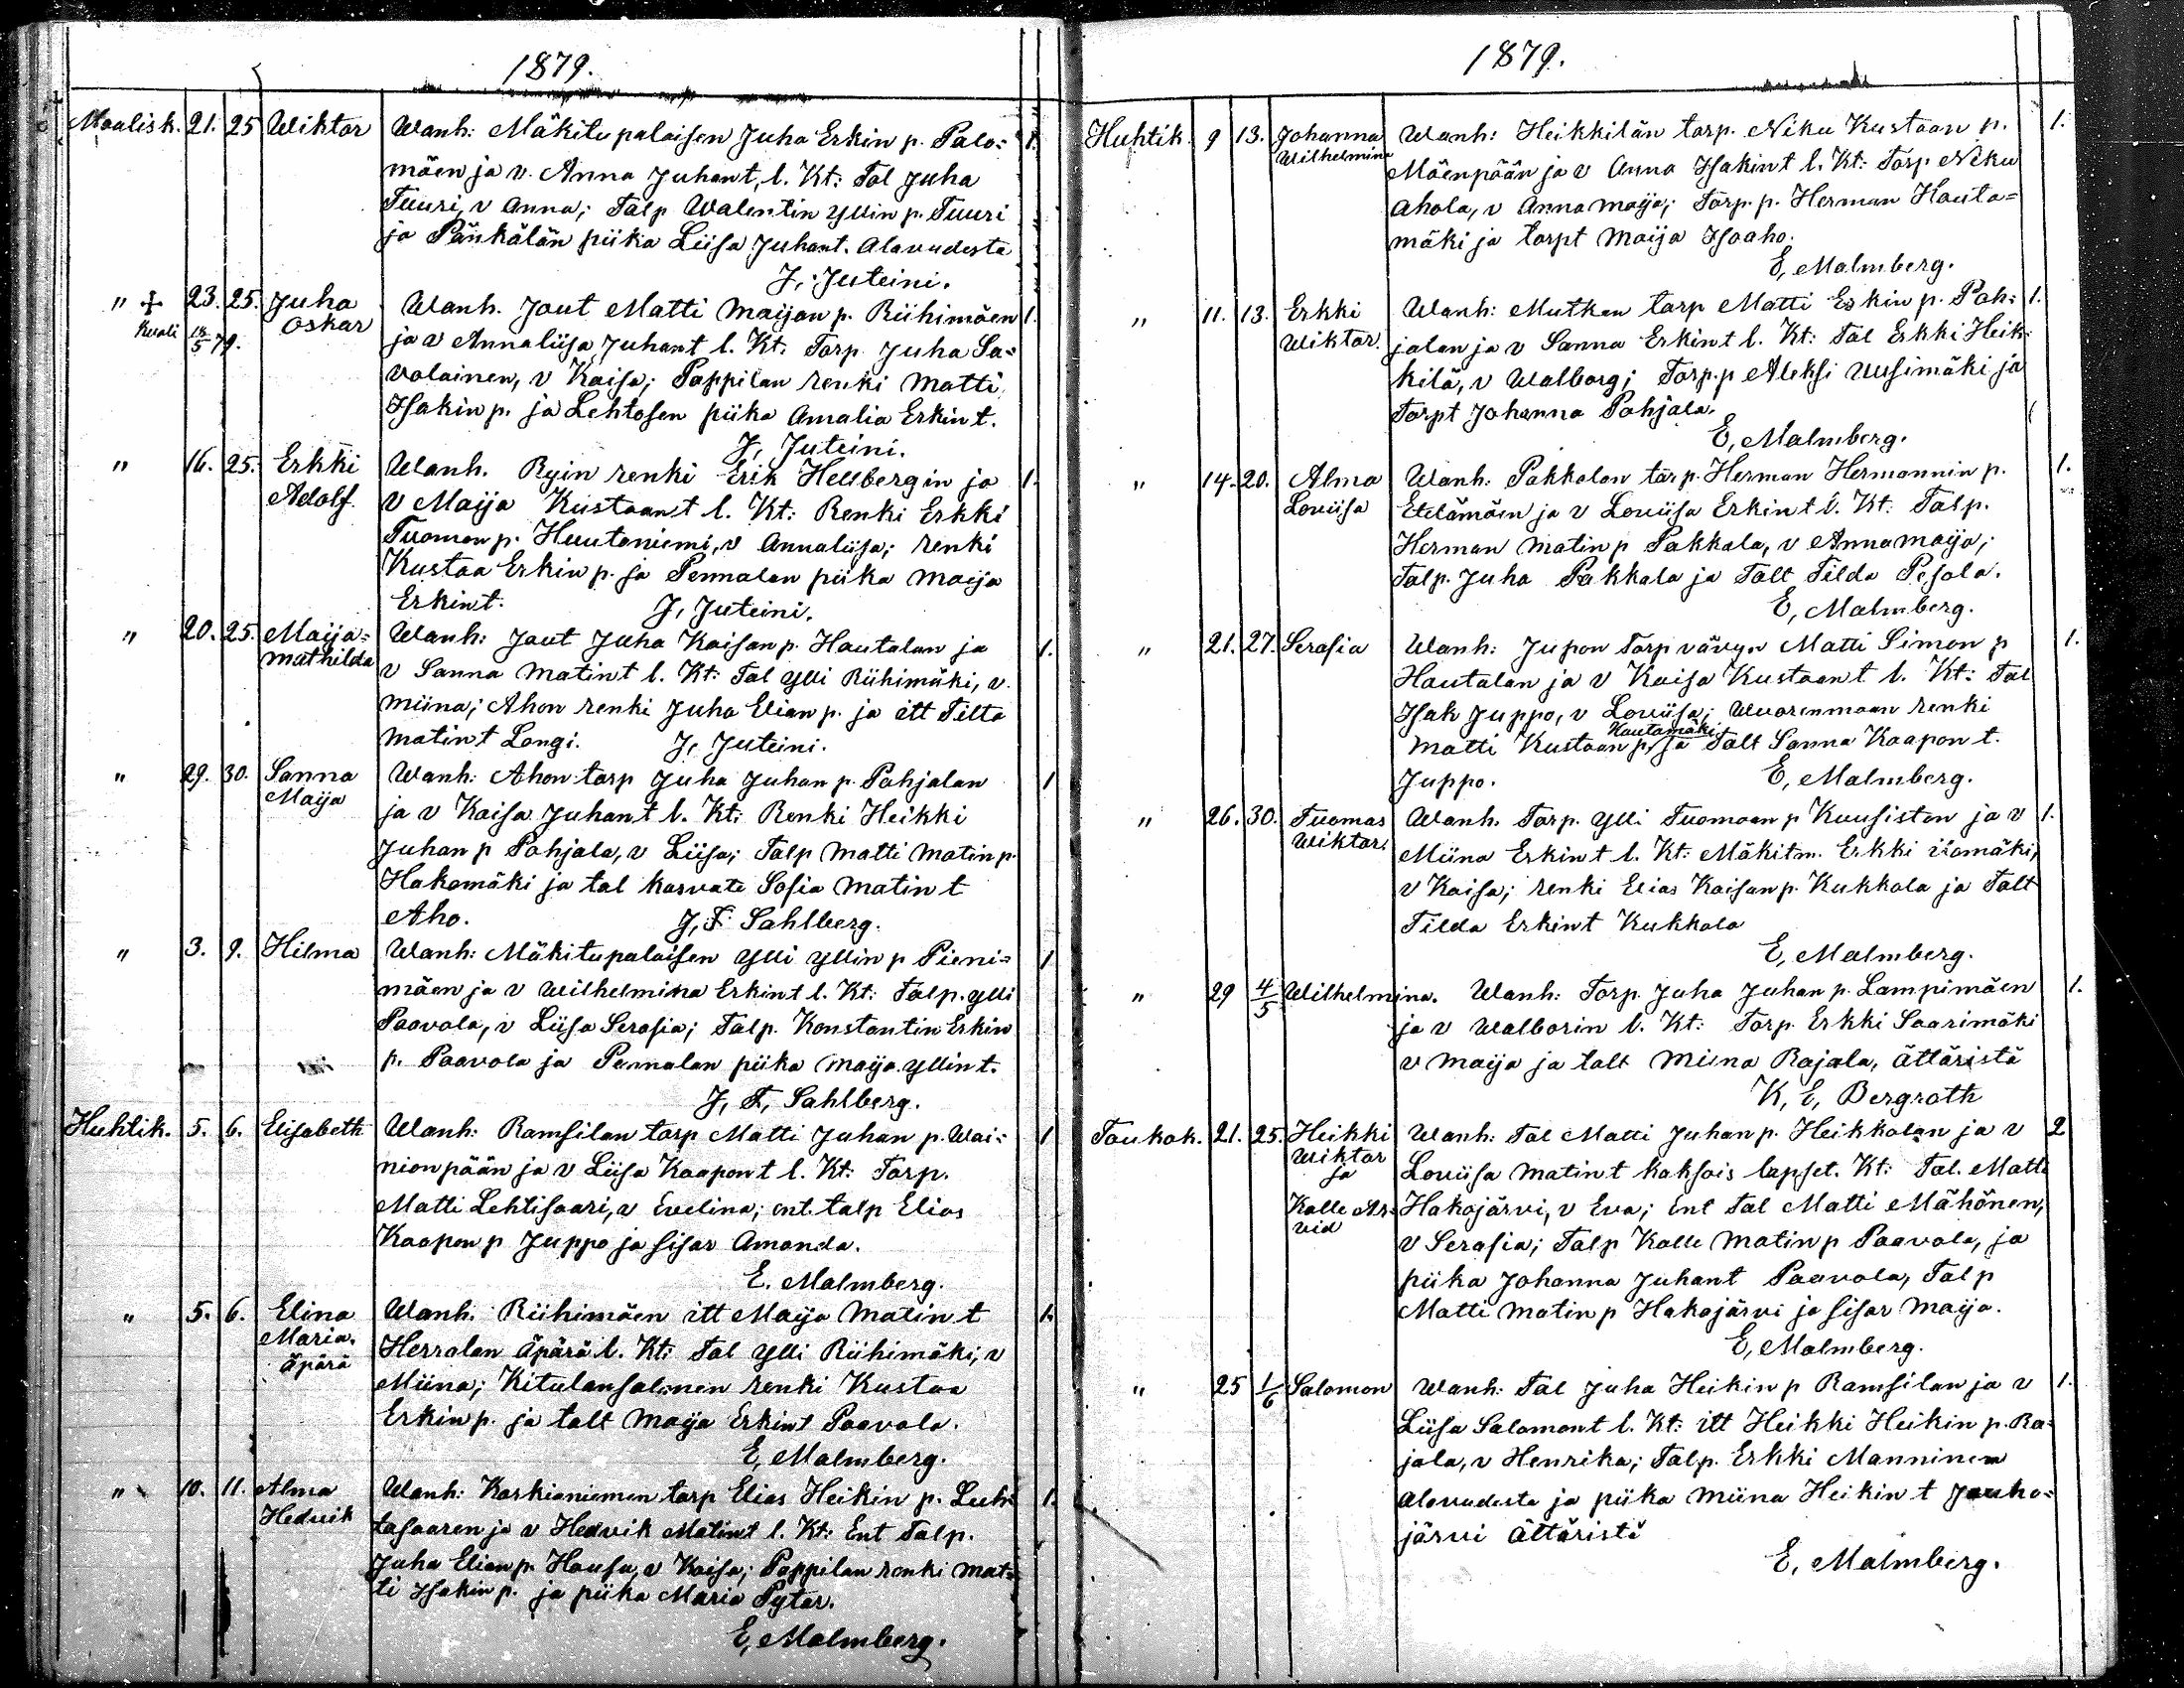 1879.
Maalisk. 21. 25 Wiktor Wanh: Mäkitupalaisen Juha Erkin p. Palo= 1.
mäen ja v. Anna Juhant. l. Kt: Tal Juha
Tuuri, v Anna; Talp Walentin Yllin p. Tuuri
ja Pänkälän piika Liisa Juhant. Alavudesta
J. Juteini.
" + 23. 25. Juha Wanh. Jout Matti Maijan p. Riihimäen 1.
Kuoli 18/5 79. Oskar ja v Annaliisa Juhant l. Kt: Torp Juha Sa=
volainen, v Kaisa; Pappilan renki Matti
Isakin p. ja Lehtosen piika Amalia Erkint.
J, Juteini.
" 16. 25. Erkki Wanh. Ryin renki Erik Hellbergin ja 1.
Adolf. v Maija Kustaant l. Kt: Renki Erkki
Tuomon p. Huutoniemi, v Annaliisa; renki
Kustaa Erkin p. ja Pennalan piika Maija
Erkint. J, Juteini.
" 20. 25. Maija= Wanh: Jout Juha Kaisan p. Hautalan ja 1.
mathilda v Sanna Matint l. Kt: Tal Ylli Riihimäki, v.
Miina; Ahon renki Juha Elian p. ja itt Tilta
Matint Langi. J, Juteini.
" 29. 30. Sanna Wanh: Ahon torp Juha Juhan p. Pohjalan 1
Maija ja v Kaisa Juhant l. Kt: Renki Heikki
Juhan p Pohjala, v Liisa; Talp Matti Matin p.
Hakomäki ja tal kasvate Sofia Matint
Aho. J, F. Sahlberg.
" 3. 9. Hilma Wanh: Mäkitupalaisen Ylli Yllin p Pieni= 1
mäen ja v Wilhelmina Erkint l. Kt: Talp. Ylli
Paavola, v Liisa Serafia; Talp. Konstantin Erkin
p. Paavola ja Pennalan piika Maija Yllint.
J, F, Sahlberg.
Huhtik. 5. 6. Elisabeth Wanh: Ramsilan torp Matti Juhan p. Wai= 1
nionpään ja v Liisa Kaapont l. Kt: Torp.
Matti Lehtisaari, v Evelina; ent. talp Elias
Kaapon p Juppo ja sisar Amanda.
E. Malmberg.
" 5. 6. Elina Wanh. Riihimäen itt Maija Matint 1.
Maria. Herralan äpärä l. Kt: Tal Ylli Riihimäki, v
äpärä Miina; Kitulansalmen renki Kustaa
Erkin p. ja talt Maija Erkint Paavola.
E, Malmberg.
" 10. 11. Alma Wanh: Koskianiemen torp Elias Heikin p. Luh= 1.
Hedvik tasaaren ja v Hedvik Matint l. Kt: Ent Talp.
Juha Elian p. Hausa, v Kaisa; Pappilan renki Mat=
ti Isakin p. ja piika Maria Pytar.
E, Malmberg.
1879.
Huhtik. 9 13. Johanna Wanh: Heikkilän torp. Niku Kustaan p. 1.
Wilhelmina Mäenpään ja v Anna Isakint l. Kt: Torp Niku
Ahola, v Annamaija; Torp. p. Herman Hauta=
mäki ja torpt Maija Isoaho.
E, Malmberg.
" 11. 13. Erkki Wanh: Mutkan torp Matti Erkin p. Poh= 1.
Wiktor. jalan ja v Sanna Erkint l. Kt: Tal Erkki Heik=
kilä, v Walborg; Torp. p Aleksi Uusimäki ja
Torpt Johanna Pohjala.
E, Malmberg.
" 14. 20. Alma Wanh: Pakkalan torp. Herman Hermannin p. 1.
Loviisa Etelämäen ja v Loviisa Erkint l. Kt: Talp.
Herman Matin p Pakkala, v Annamaija;
Talp. Juha Pakkala ja Talt Tilda Pesola.
E, Malmberg.
" 21. 27. Serafia Wanh: Jupon Torp vävyn Matti Simon p 1.
Hautalan ja v Kaisa Kustaant l. Kt: Tal
Isak Juppo, v Loviisa; Wuorenmaan renki
Matti Kustaan p Hautamäki ja Talt Sanna Kaapont.
Juppo. E, Malmberg.
" 26. 30. Tuomas Wanh. Torp. Ylli Tuomaan p Kuusiston ja v 1.
Wiktor. Miina Erkint l. Kt: Mäkitm. Erkki isomäki,
v Kaisa; renki Elias Kaisan p. Kukkola ja Talt
Tilda Erkint Kukkola
E, Malmberg.
" 29 4/5 Wilhelmina. Wanh: Torp. Juha Juhan p. Lampimäen 1.
ja v Walborin l. Kt: Torp. Erkki Saarimäki
v Maija ja talt Miina Rajala, ättäristä
K, E, Bergroth
Toukok. 21. 25. Heikki Wanh: Tal Matti Juhan p. Heikkolan ja v 2
Wiktor ja Loviisa Matint kaksois lapset. Kt: Tal. Matti
Kalle Ar= Hakojärvi, v Eva; Ent Tal Matti Mähönen,
vid v Serafia; Talp Kalle Matin p Paavola, ja
piika Johanna Juhant Paavola, Talp
Matti Matin p Hakojärvi ja sisar Maija.
E, Malmberg.
" 25 1/6 Salomon Wanh: Tal Juha Heikin p Ramsilan ja v 1.
Liisa Salomont l. Kt: itt Heikki Heikin p. Ra=
jala, v Henrika; Talp. Erkki Manninen
Alavudesta ja piika Miina Heikint Jouko=
järvi ättäristä
E, Malmberg.